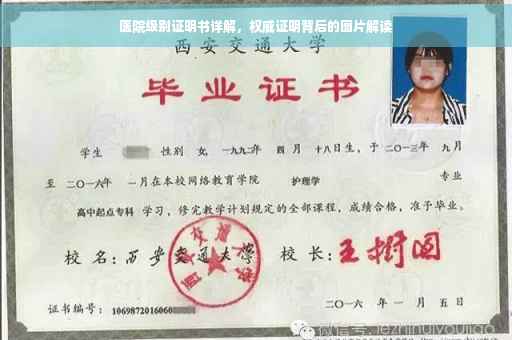 医院级别证明书详解，权威证明背后的图片解读
西安交通大学
毕业证书
学生 性别 女，一九九二年 四 月 十八日生，于 二〇一三年 九月
至 二〇一六年 一月在本校网络教育学院 护理学 专业
高中起点专科 学习，修完教学计划规定的全部课程，成绩合格，准予毕业。
校 名：西安交通大学 校 长：王树国
西安交通大学
证书编号：1069872016060
二〇一六 年 一 月 五 日
微信号: jiezhinuiyoujiao